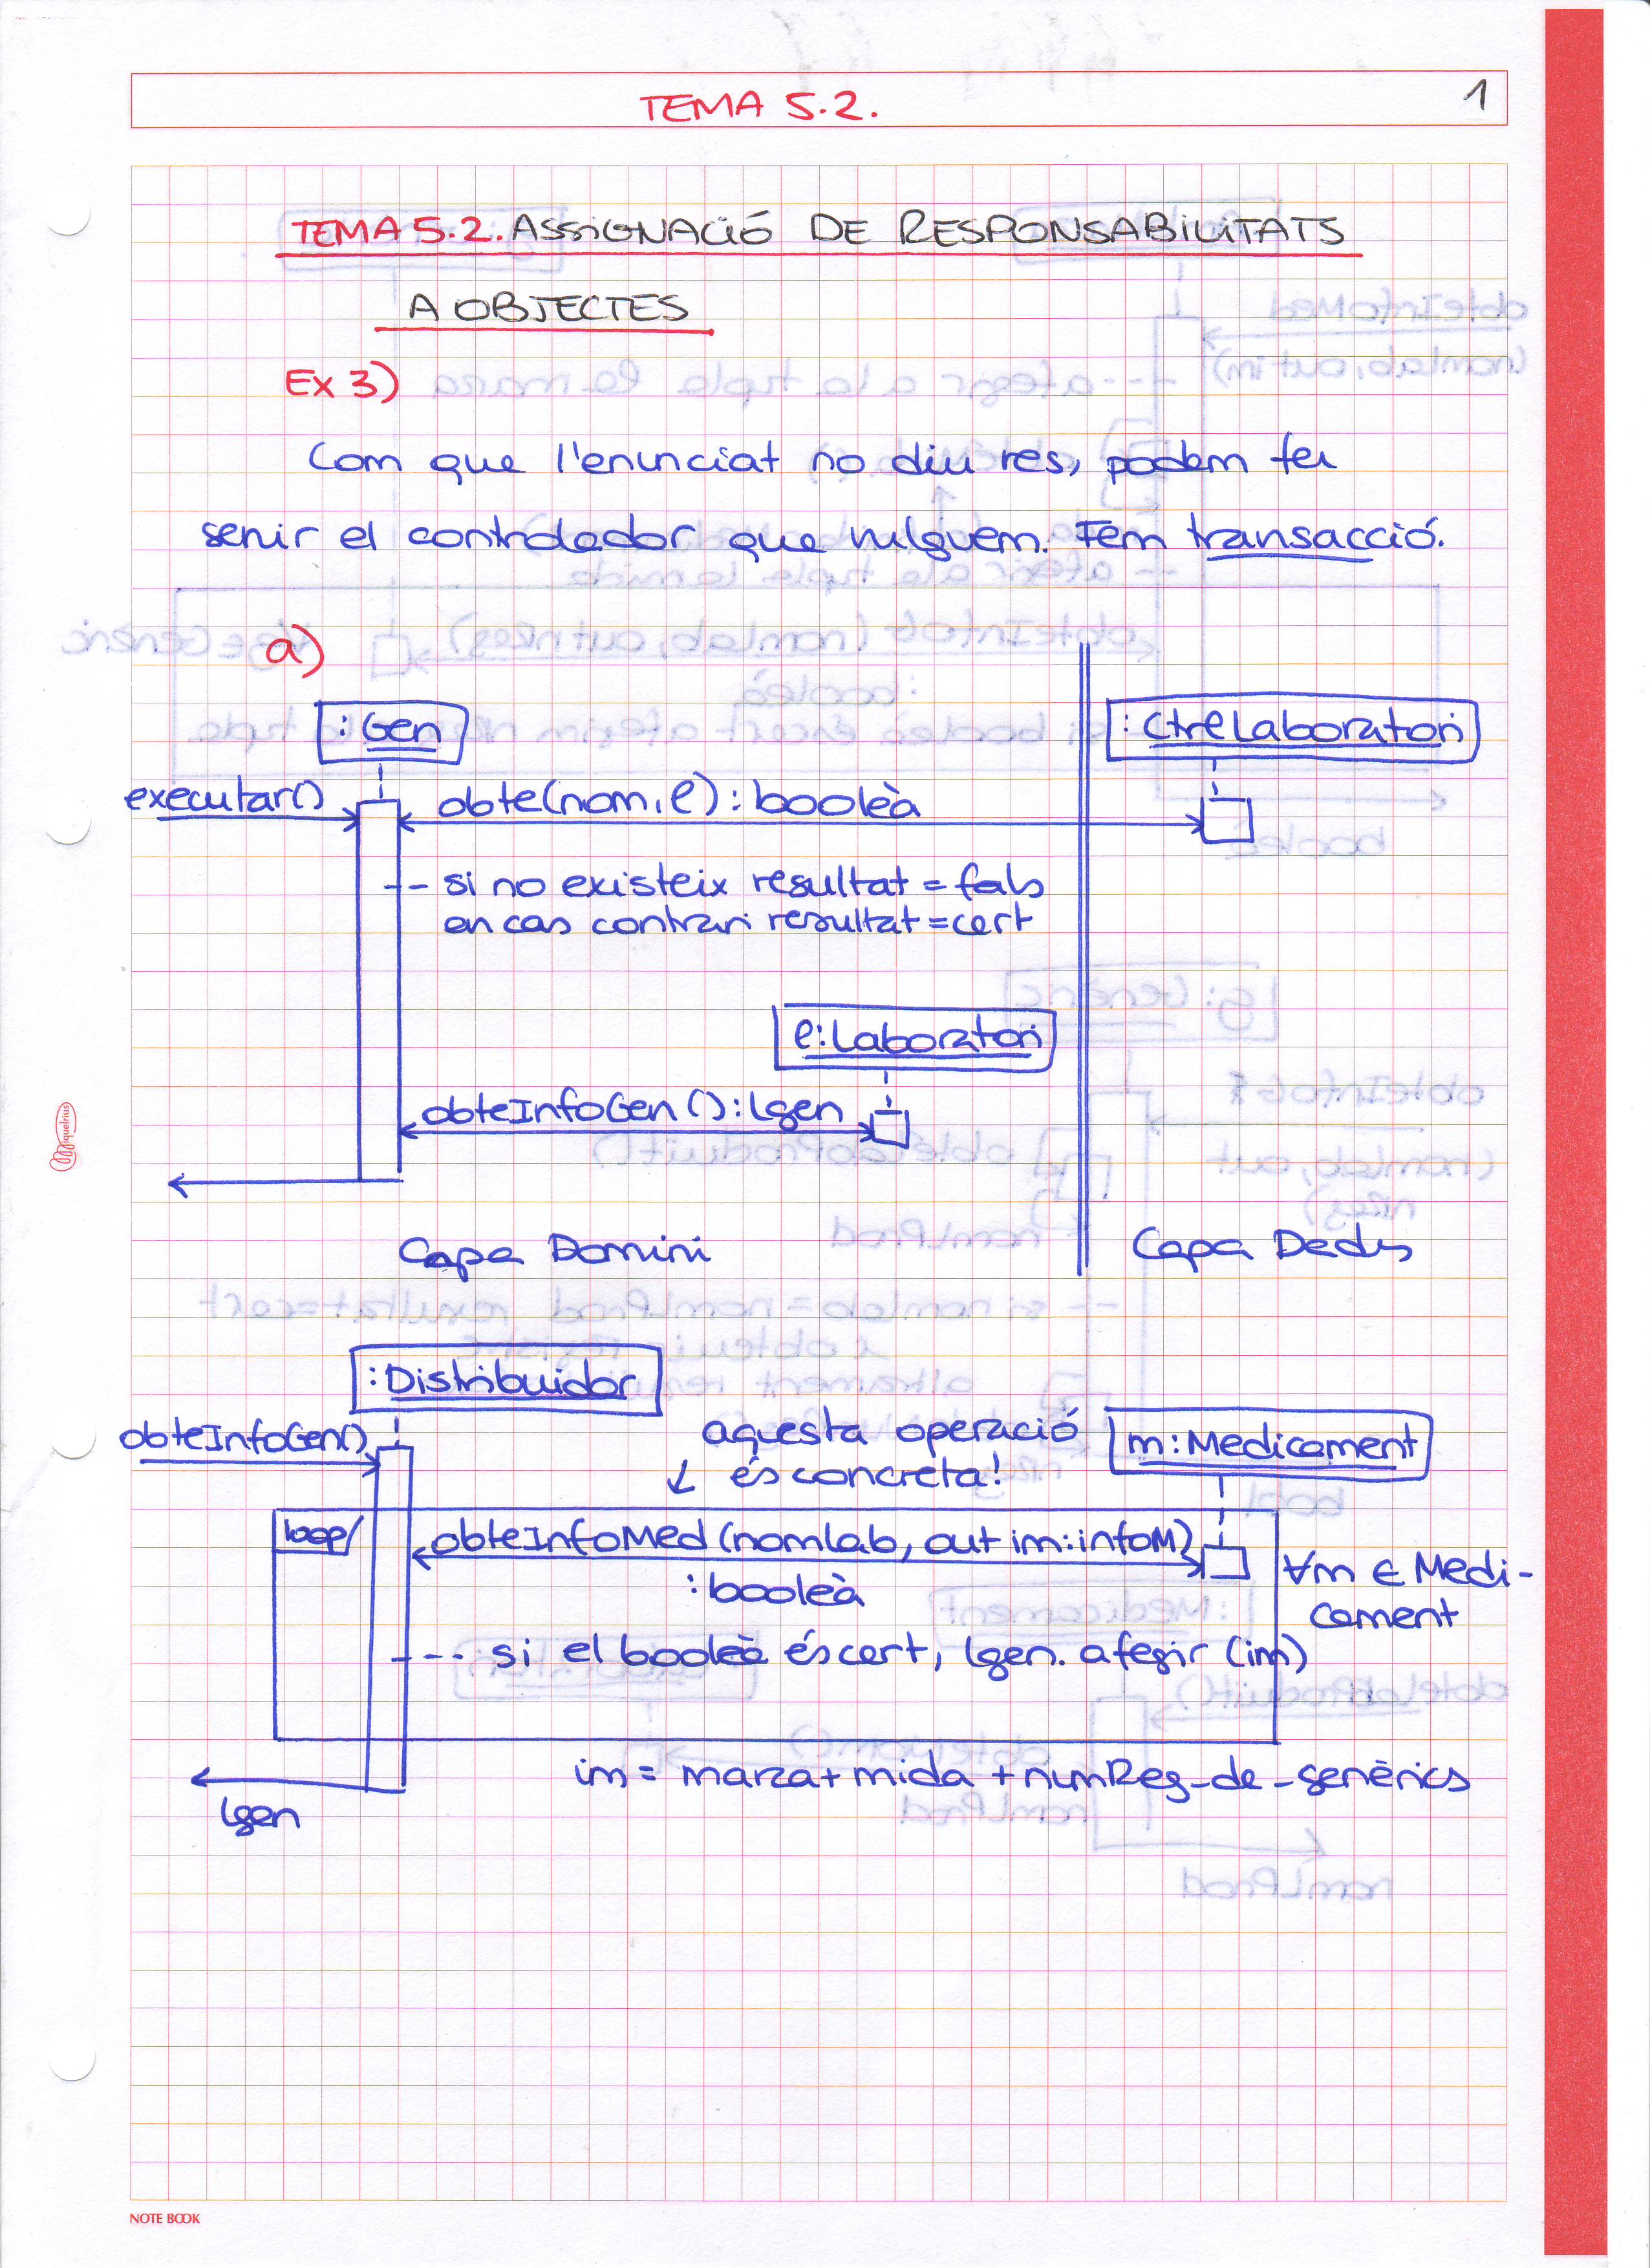 TEMA 5.2.
1
TEMA 5.2. ASSIGNACIÓ DE RESPONSABILITATS
A OBJECTES
Ex 3)
Com que l'enunciat no diu res, podem fer
servir el controlador que vulguem. Fem transacció.
a)
:Gen
:CtrlLaboratori
executar()
obte(nom, l): booleà
-- si no existeix resultat = fals
en cas contrari resultat = cert
l:Laboratori
obteInfoGen(): lgen
Capa Domini
Capa Dades
:Distribuidor
obteInfoGen()
aquesta operació
és concreta!
m:Medicament
loop
obteInfoMed (nomlab, out im:infoM)
:booleà
∀m ∈ Medi-
cament
--- si el booleà és cert, lgen. afegir (im)
im = marca + mida + numReg-de-genèrics
lgen
miquelrius
NOTE BOOK